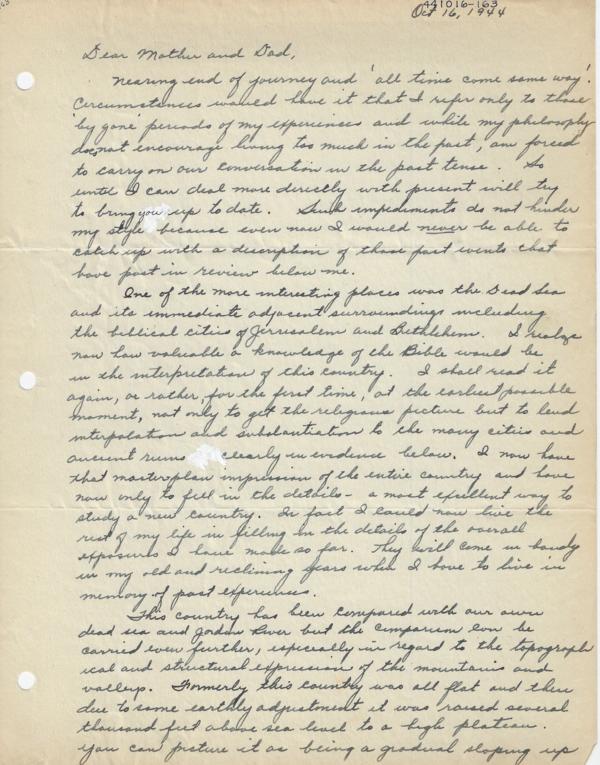 441016-163
Oct 16, 1944
Dear Mother and Dad,
Nearing end of journey and 'all time come same way'.
Circumstances would have it that I refer only to those
'by gone' periods of my experiences and while my philosophy
does not encourage living too much in the past, am forced
to carry on our conversation in the past tense. So
until I can deal more directly with present will try
to bring you up to date. Such impediments do not hinder
my style because even now I would never be able to
catch up with a description of those past events that
have past in review below me.
One of the more interesting places was the Dead Sea
and its immediate adjacent surroundings including
the biblical cities of Jerrusalem and Bethlehem. I realize
now how valuable a knowledge of the Bible would be
in the interpretation of this country. I shall read it
again, or rather, for the first time, at the earliest possible
moment, not only to get the religious picture but to lend
interpolation and substantiation to the many cities and
ancient ruins clearly in evidence below. I now have
that masterplan impression of the entire country and have
now only to fill in the details - a most excellent way to
study a new country. In fact I could now live the
rest of my life in filling in the details of the overall
exposures I have made so far. They will come in handy
in my old and reclining years when I have to live in
memory of past experiences.
This country has been compared with our own
dead sea and Jordan River but the comparison can be
carried even further, especially in regard to the topograph
ical and structural expression of the mountains and
valleys. Formerly this country was all flat and then
due to some earthly adjustment it was raised several
thousand feet above sea level to a high plateau.
You can picture it as being a gradual sloping up